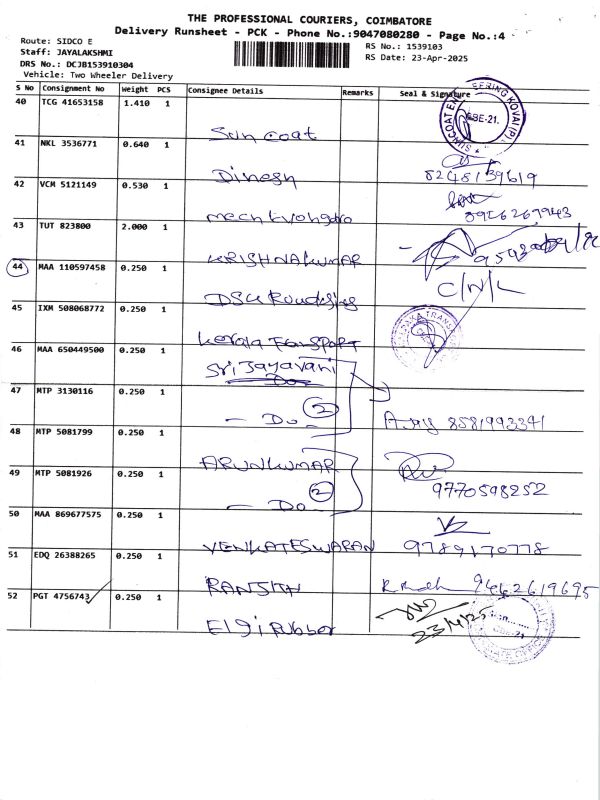 THE PROFESSIONAL COURIERS, COIMBATORE
Delivery Runsheet - PCK - Phone No.:9047080280 - Page No.:4
Route: SIDCO E
RS No.: 1539103
Staff: JAYALAKSHMI
RS Date: 23-Apr-2025
DRS No.: DCJB153910304
Vehicle: Two Wheeler Delivery
S No Consignment No Weight PCS Consignee Details Remarks Seal & Signature
40 TCG 41653158 1.410 1
Sun coat
41 NKL 3536771 0.640 1
Dinesh 8248139619
42 VCM 5121149 0.530 1
43 TUT 823800 2.000 1
KRISHNAKUMAR
44 MAA 110597458 0.250 1
C/N/L
45 IXM 508068772 0.250 1
Kerala Transport
46 MAA 650449500 0.250 1
Sri Jayavani
Do
47 MTP 3130116 0.250 1
- Do - 2 8581993341
48 MTP 5081799 0.250 1
ARUNKUMAR
49 MTP 5081926 0.250 1
- Do - 2 9770598252
50 MAA 869677575 0.250 1
VENKATESWARAN 9789170778
51 EDQ 26388265 0.250 1
RANJITH 9442619695
52 PGT 4756743 0.250 1
Elgi Rubber 23/4/25